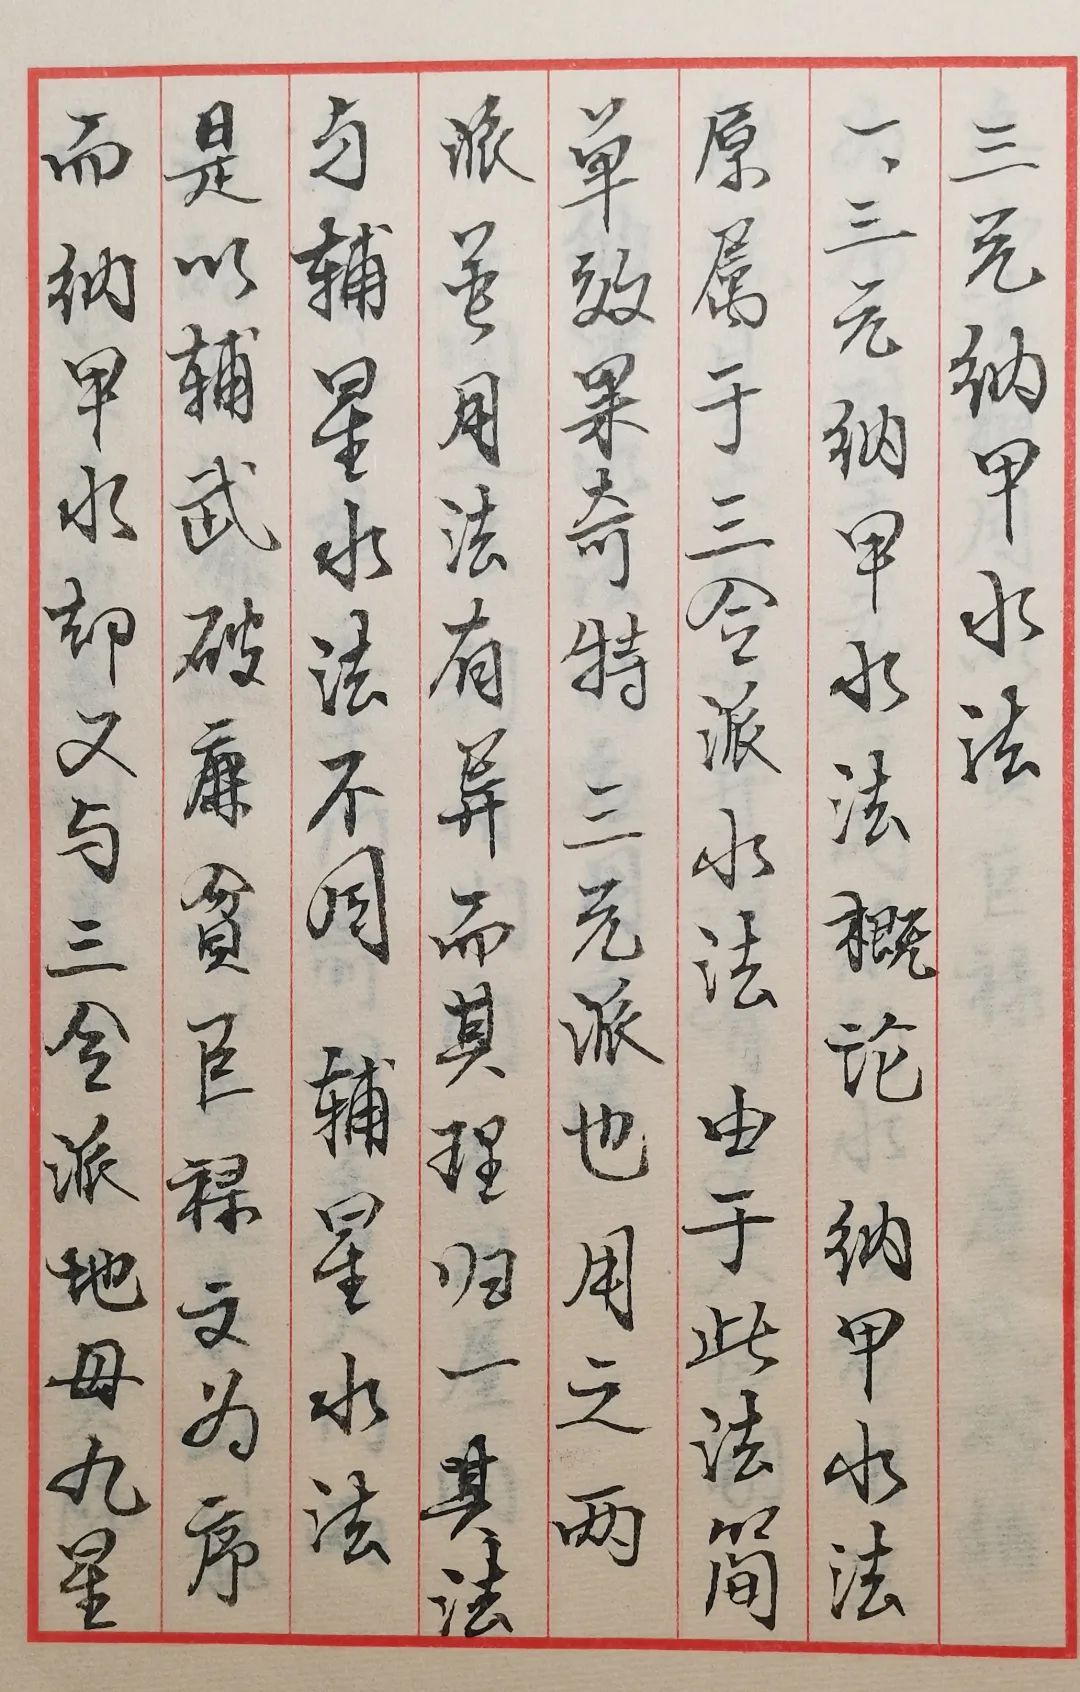 三元纳甲水法
一、三元纳甲水法概论 纳甲水法
原属于三合派水法 由于此法简
单效果奇特 三元派也用之 两
派虽用法有异而其理归一 其法
与辅星水法不同 辅星水法
是以辅武破廉贪巨禄文为序
而纳甲水却又与三合派地母九星